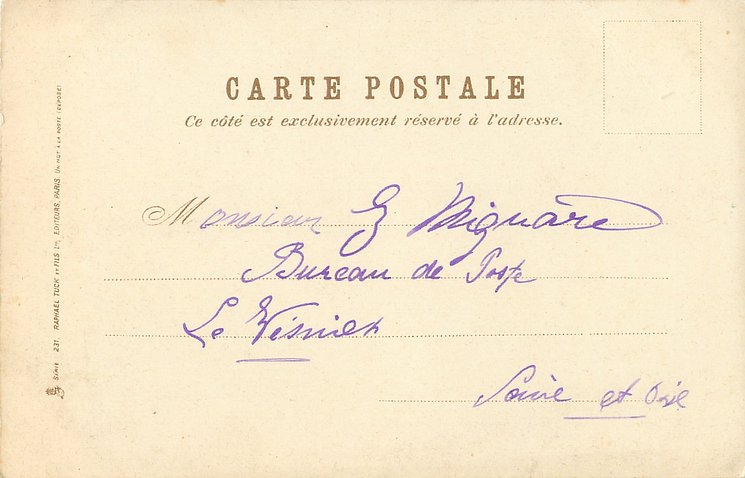 CARTE POSTALE
Ce côté est exclusivement réservé à l'adresse.
Monsieur G Mignère
Bureau de Poste
Le Vésinet
Seine et Oise
SÉRIE 231. RAPHAEL TUCK ET FILS LTD, EDITEURS, PARIS. UN MOT À LA POSTE (DÉPOSÉ)